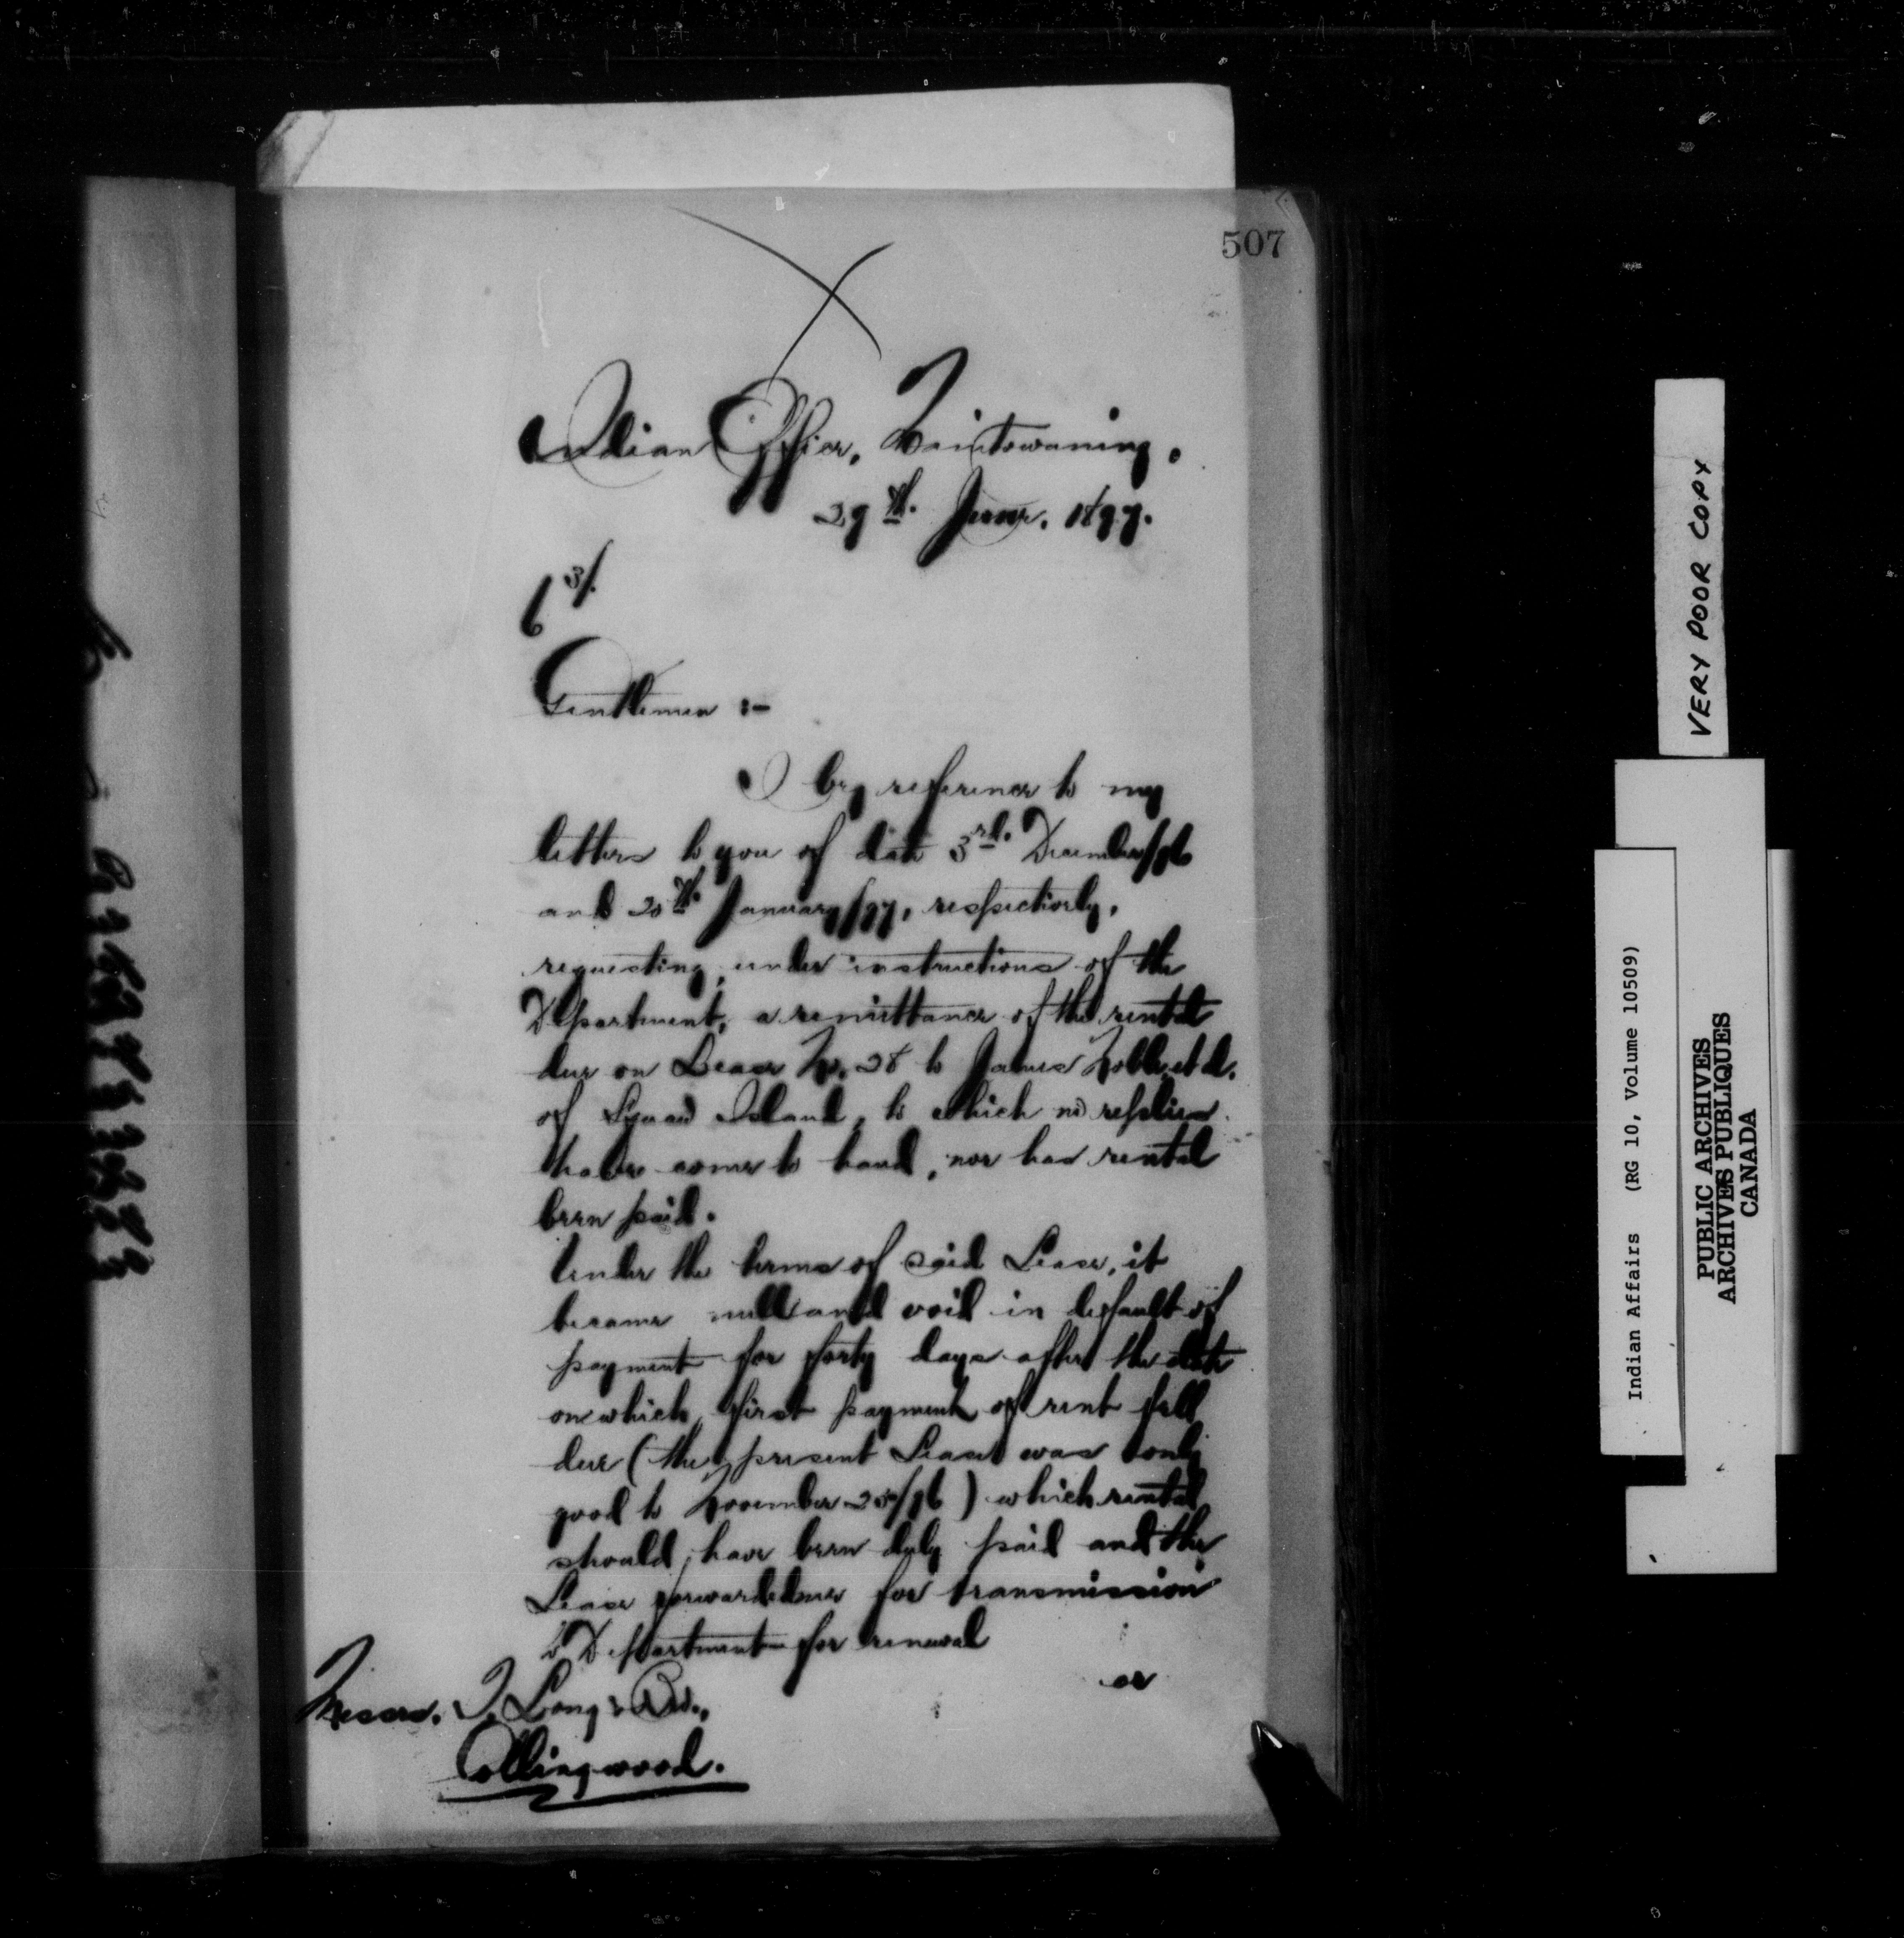 507
Indian Office, Manitowaning.
29th. June, 1897.
Gentlemen :-
I beg reference to my
letters to you of date 3rd. December/96
and 20th. January/97, respectively,
requesting, under instructions of the
Department, a remittance of the rental
due on Lease No. 28 to James Noble, et al.
of Squaw Island, to which no replies
have come to hand, nor has rental
been paid.
Under the terms of said Lease, it
became null and void in default of
payment for forty days after the date
on which first payment of rent fell
due (the present Lease was only
good to November /96) which rental
should, have been duly paid and the
Lease forwarded me for transmission
to Department for renewal
or
Messrs. T. Long & Bro.,
Collingwood.
VERY POOR COPY
Indian Affairs (RG 10, Volume 10509)
PUBLIC ARCHIVES
ARCHIVES PUBLIQUES
CANADA